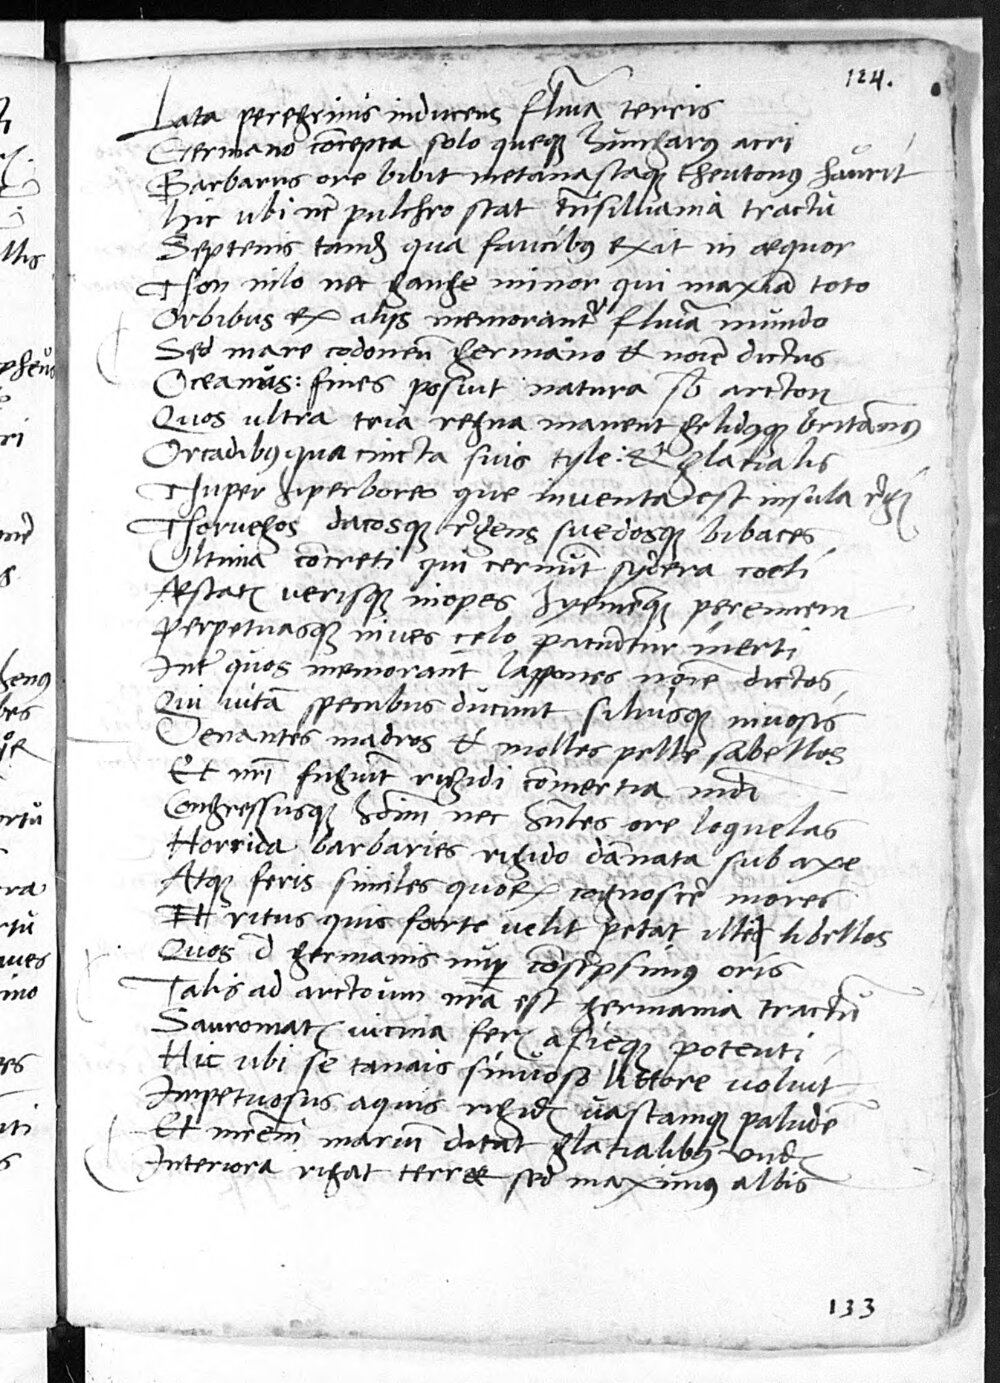 124.
Lata peregrinis inducens flūīa terris
Germano cōcepta solo queqꝫ hungarꝰ acri
Barbarus ore bibit metanastaqꝫ theutonꝰ haurit
Hic ubi nc̄ pulchro stat trāsiluania tractu
Septenis tandē qua faucibꝰ exit in æquor
Non nilo nec gange minor qui maxīā toto
Orbibus ex alijs memorant͛ flumīa mundo
Sed mare codoneū germano & noīe dictus
Oceanus: fines posuit natura sb̄ arcton
Quos ultra tria regna manent gelidꝰqꝫ britānꝰ
Orcadibꝰ qua cincta suis tyle: & glatialis
Nuper hiperboreo que inventa est insula
Noruegos dacosqꝫ rigens suedosqꝫ bibaces
Ultima cōcreti qui cernūt sydera coeli
Æstatꝭ verisqꝫ inopes hyemēqꝫ perennem
Perpetuasqꝫ niues celo patiuntur inerti
Int̄ quos memorant lappones noīe dictos
Qui uitā specubus ducunt siluisqꝫ niuosis
Venantes madros & molles pelle sabellos
Et nr̄i fugiūt rigidi cōmertia mūdi
Congressusqꝫ hoīm nec hn̄tes ore loquelas
Horrida barbaries rigido dānata sub axe
Atqꝫ feris similes quoꝝ cognoscē mores
Et ritus quis forte uelit petat ille libellos
Quos d̄ germanis nuꝑ cōscripsimꝰ oris
Talis ad arctoum nr̄a est germania tractū
Sauromatꝭ uicina ferꝭ asieqꝫ potenti
Hic ubi se tanais sinuoso littore voluit
Impetuosus aquis rigidꝭ uastamqꝫ paludē
Et mareīn mariū ditat glatialibꝰ undꝭ
Interiora rigat terræ sed maximꝰ albis
133